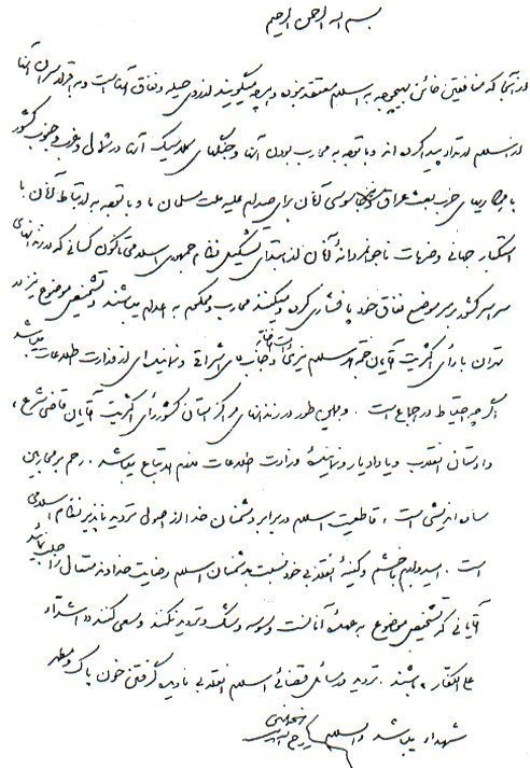 بسم الله الرحمن الرحیم
از آنجا که منافقین خائن بهیچوجه به اسلام معتقد نبوده و هر چه میگویند از روی حیله و نفاق آنهاست و به اقرار سران آنها
از اسلام ارتداد پیدا کرده‌اند و با توجه به محارب بودن آنها و جنگهای کلاسیک آنها در شمال و غرب و جنوب کشور
با همکاریهای حزب بعث عراق و نیز جاسوسی آنان برای صدام علیه ملت مسلمان ما و با توجه به ارتباط آنان با
استکبار جهانی و ضربات ناجوانمردانهٔ آنان از ابتدای تشکیل نظام جمهوری اسلامی تاکنون کسانی که در زندانهای
سراسر کشور بر سر موضع نفاق خود پافشاری کرده و میکنند محارب و محکوم به اعدام میباشند و تشخیص موضوع نیز در
تهران با رأی اکثریت آقایان حجةالاسلام نیری دامت افاضاته و جناب آقای اشراقی و نماینده‌ای از وزارت اطلاعات میباشد
اگر چه احتیاط در اجماع است . و همین طور در زندانهای مراکز استان کشور رأی اکثریت آقایان قاضی شرع ،
دادستان انقلاب و یا دادیار و نمایندهٔ وزارت اطلاعات لازم الاتباع میباشد . رحم بر محاربین
ساده‌اندیشی است ، قاطعیت اسلام در برابر دشمنان خدا از اصول تردید ناپذیر نظام اسلامی
است . امیدوارم با خشم و کینهٔ انقلابی خود نسبت به دشمنان اسلام رضایت خداوند متعال را جلب نمائید
آقایانی که تشخیص موضوع به عهدهٔ آنان است وسوسه و شک و تردید نکنند و سعی کنند « اشداء
علی الکفار » باشند . تردید در مسائل قضائی اسلام انقلابی نادیده گرفتن خون پاک و مطهر
شهداء میباشد والسلام روح الله الموسوی الخمینی